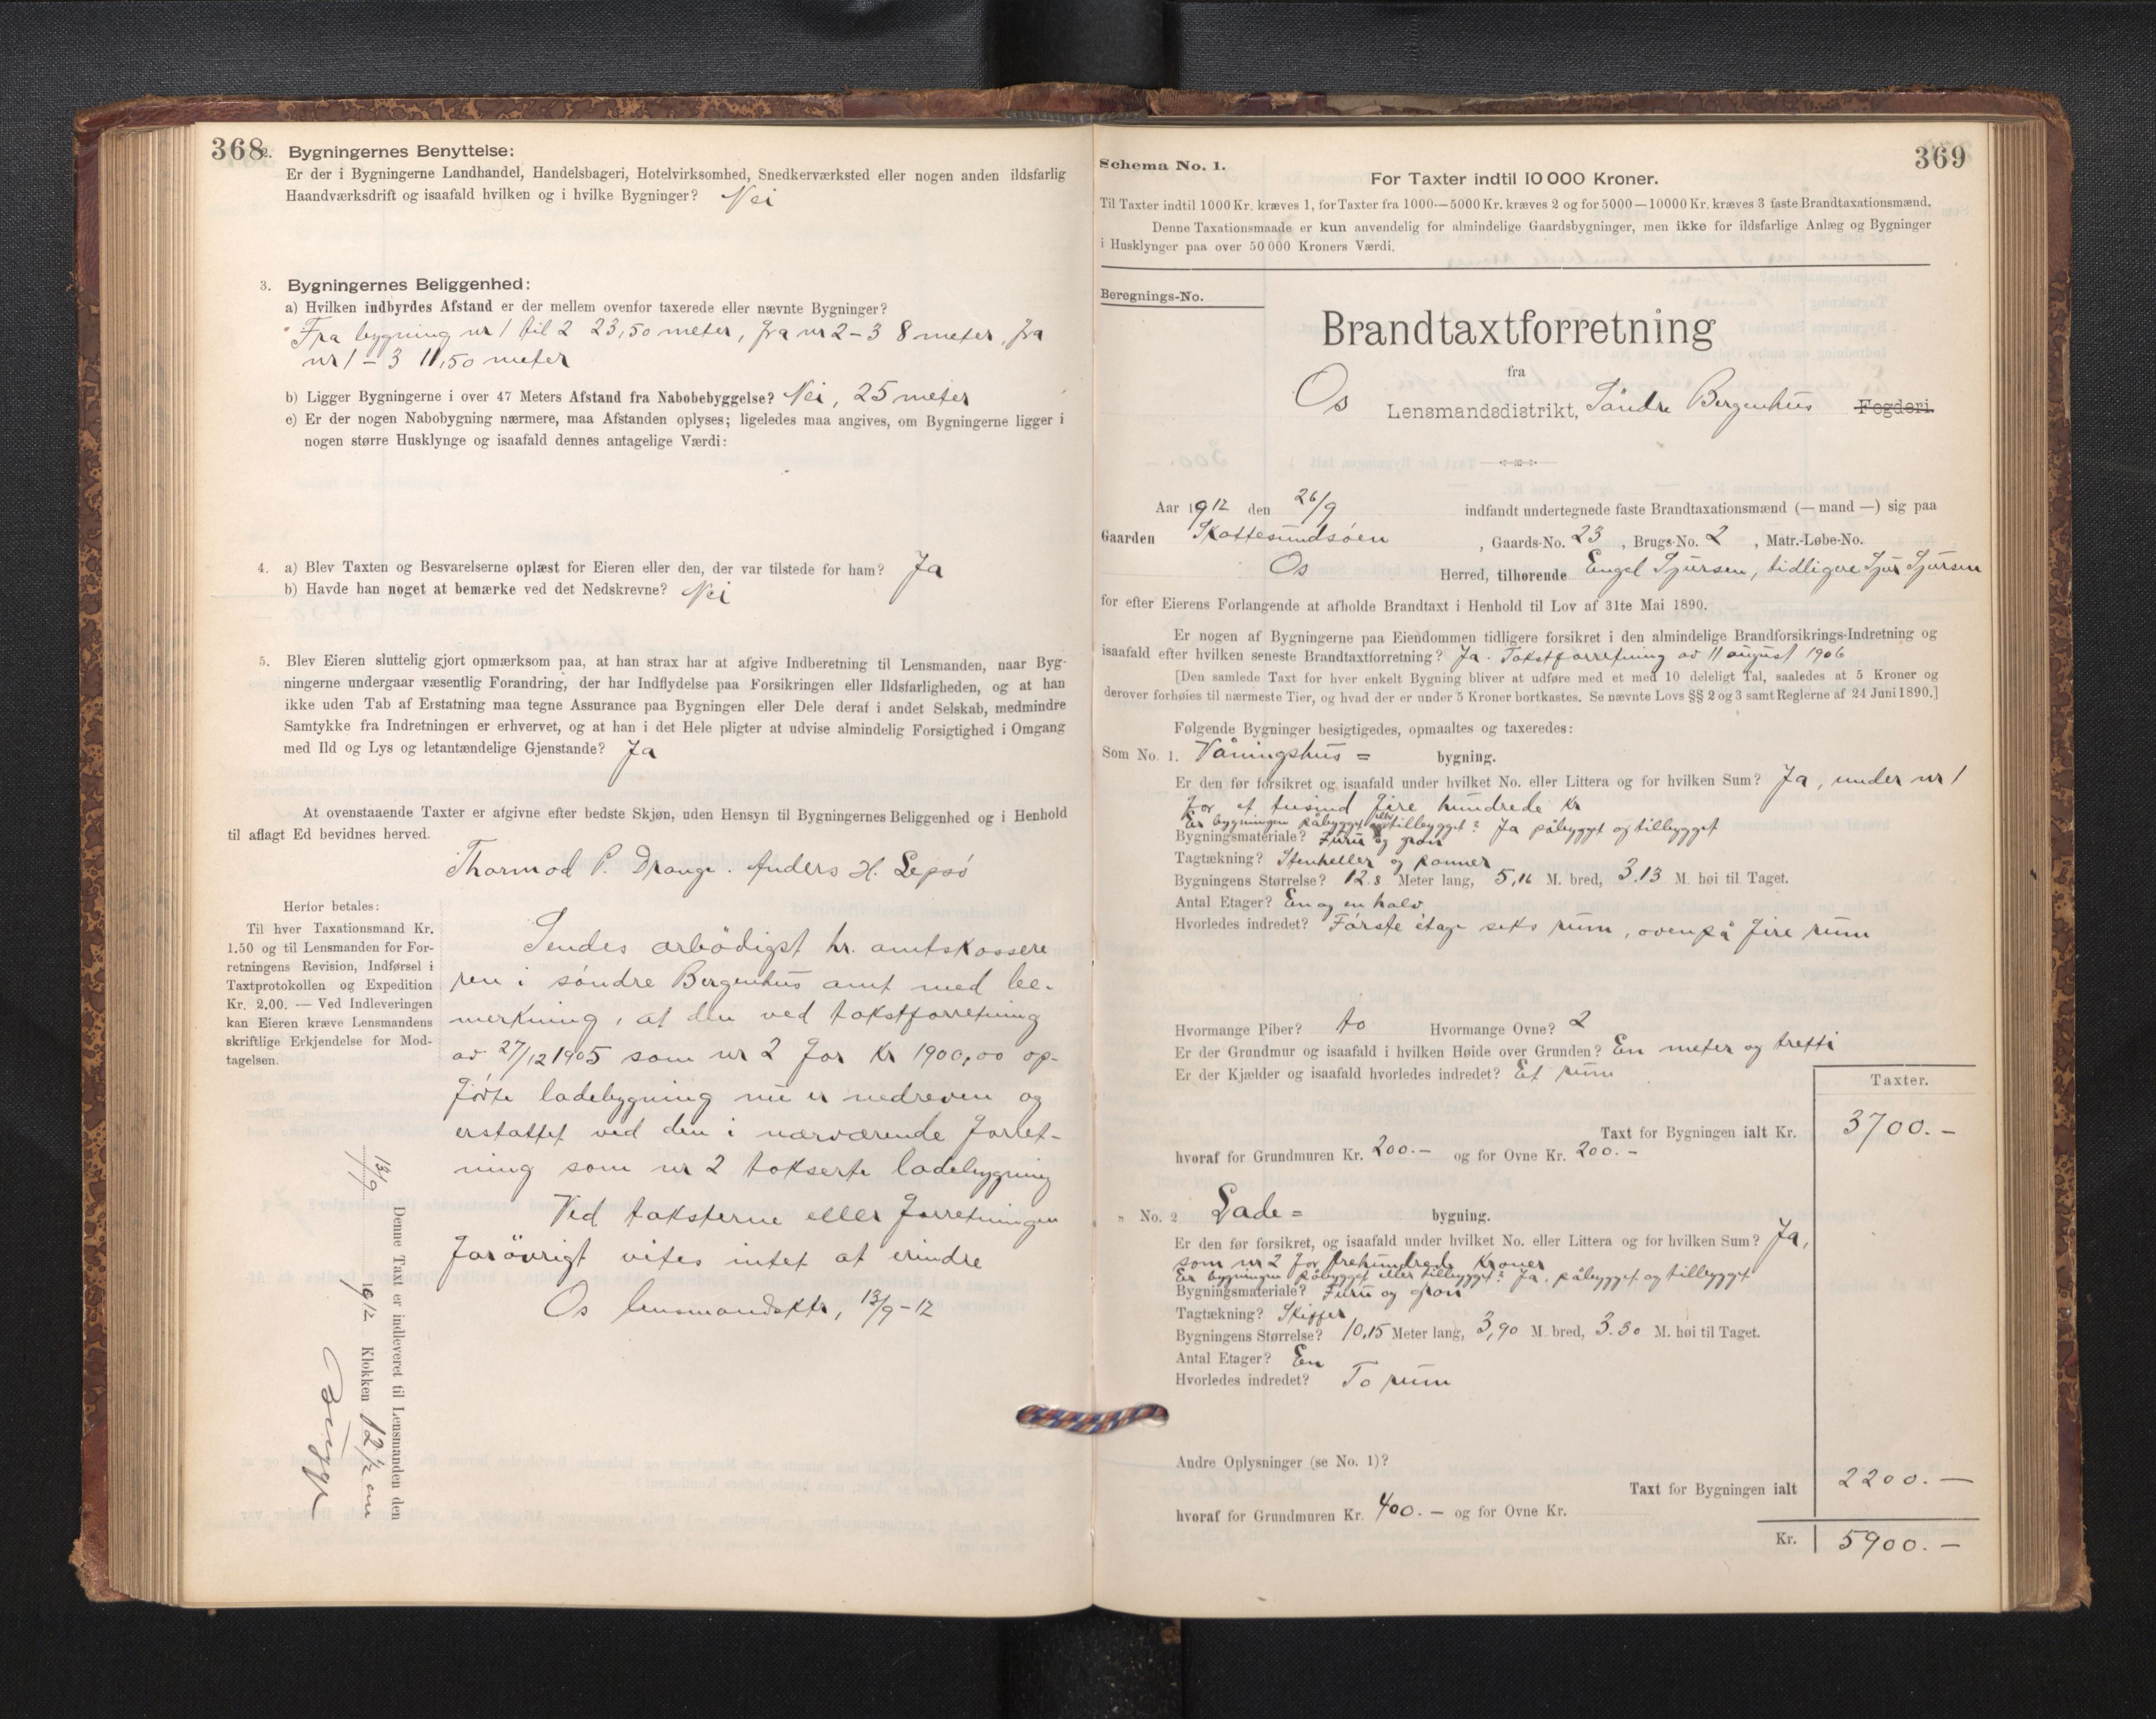 368
2. Bygningernes Benyttelse:
Er der i Bygningerne Landhandel, Handelsbageri, Hotelvirksomhed, Snedkerværksted eller nogen anden ildsfarlig
Haandværksdrift og isaafald hvilken og i hvilke Bygninger? Nei
3. Bygningernes Beliggenhed:
a) Hvilken indbyrdes Afstand er der mellem ovenfor taxerede eller nævnte Bygninger?
Fra bygning nr 1 til 2 23,50 meter, fra nr 2-3 8 meter, fra
nr 1 - 3 11,50 meter
b) Ligger Bygningerne i over 47 Meters Afstand fra Nabobebyggelse? Nei, 25 meter
c) Er der nogen Nabobygning nærmere, maa Afstanden oplyses; ligeledes maa angives, om Bygningerne ligger i
nogen større Husklynge og isaafald dennes antagelige Værdi:
4. a) Blev Taxten og Besvarelserne oplæst for Eieren eller den, der var tilstede for ham? Ja
b) Havde han noget at bemærke ved det Nedskrevne? Nei
5. Blev Eieren sluttelig gjort opmærksom paa, at han strax har at afgive Indberetning til Lensmanden, naar Byg-
ningerne undergaar væsentlig Forandring, der har Indflydelse paa Forsikringen eller Ildsfarligheden, og at han
ikke uden Tab af Erstatning maa tegne Assurance paa Bygningen eller Dele deraf i andet Selskab, medmindre
Samtykke fra Indretningen er erhvervet, og at han i det Hele pligter at udvise almindelig Forsigtighed i Omgang
med Ild og Lys og letantændelige Gjenstande? Ja
At ovenstaaende Taxter er afgivne efter bedste Skjøn, uden Hensyn til Bygningernes Beliggenhed og i Henhold
til aflagt Ed bevidnes herved.
Thormod P. Drange. Anders H. Lepsö
Herfor betales:
Til hver Taxationsmand Kr.
1.50 og til Lensmanden for For-
retningens Revision, Indførsel i
Taxtprotokollen og Expedition
Kr. 2.00. — Ved Indleveringen
kan Eieren kræve Lensmandens
skriftlige Erkjendelse for Mod-
tagelsen.
Sendes ærbödigst hr. amtskassere
ren i söndre Bergenhus amt med be-
merkning, at den ved takstforretning
av 27/12 1905 som nr 2 for kr 1900,00 op-
förte ladebygning nu er nedreven og
erstattet ved den i nærværende forret-
ning som nr 2 takserte ladebygning
Ved taksterne eller forretningen
forövrigt vites intet at erindre
Os lensmandsktr, 13/9-12
Denne Taxt er indleveret til Lensmanden den
13/9 1912 Klokken 12 1/2 em
369
Schema No. 1.
For Taxter indtil 10 000 Kroner.
Til Taxter indtil 1000 Kr. kræves 1, for Taxter fra 1000—5000 Kr. kræves 2 og for 5000—10000 Kr. kræves 3 faste Brandtaxationsmænd.
Denne Taxationsmaade er kun anvendelig for almindelige Gaardsbygninger, men ikke for ildsfarlige Anlæg og Bygninger
i Husklynger paa over 50 000 Kroners Værdi.
Beregnings-No.
Brandtaxtforretning
fra
Os Lensmandsdistrikt, Söndre Bergenhus Fogderi.
Aar 1912 den 26/9 indfandt undertegnede faste Brandtaxationsmænd (— mand —) sig paa
Gaarden Skottesundsöen, Gaards-No. 23, Brugs-No. 2, Matr.-Løbe-No.
Os Herred, tilhørende Engel Sjursen, tidligere Sjur Sjursen
for efter Eierens Forlangende at afholde Brandtaxt i Henhold til Lov af 31te Mai 1890.
Er nogen af Bygningerne paa Eiendommen tidligere forsikret i den almindelige Brandforsikrings-Indretning og
isaafald efter hvilken seneste Brandtaxtforretning? Ja. Takstforretning av 11 august 1906
[Den samlede Taxt for hver enkelt Bygning bliver at udføre med et med 10 deleligt Tal, saaledes at 5 Kroner og
derover forhøies til nærmeste Tier, og hvad der er under 5 Kroner bortkastes. Se nævnte Lovs §§ 2 og 3 samt Reglerne af 24 Juni 1890.]
Følgende Bygninger besigtigedes, opmaaltes og taxeredes:
Som No. 1. Våningshus = bygning.
Er den før forsikret og isaafald under hvilket No. eller Littera og for hvilken Sum? Ja, under nr 1
for et tusind fire hundrede kr
Er bygningen påbygget eller tilbygget? Ja påbygget og tilbygget
Bygningsmateriale? Furu og gran
Tagtækning? Stenheller og panner
Bygningens Størrelse? 12.8 Meter lang, 5,16 M. bred, 3.13 M. høi til Taget.
Antal Etager? En og en halv
Hvorledes indredet? Förste étage seks rum, ovenpå fire rum
Hvormange Piber? to Hvormange Ovne? 2
Er der Grundmur og isaafald i hvilken Høide over Grunden? En meter og tretti
Er der Kjælder og isaafald hvorledes indredet? Et rum
Taxter.
Taxt for Bygningen ialt Kr. 3700.-
hvoraf for Grundmuren Kr. 200.- og for Ovne Kr. 200.-
" No. 2 Lade = bygning.
Er den før forsikret, og isaafald under hvilket No. eller Littera og for hvilken Sum? Ja,
som nr 2 for trehundrede kroner
Er bygningen påbygget eller tilbygget? Ja, påbygget og tilbygget
Bygningsmateriale? Furu og gran
Tagtækning? Skiffer
Bygningens Størrelse? 10,15 Meter lang, 3,90 M. bred, 3.30 M. høi til Taget.
Antal Etager? En
Hvorledes indredet? To rum
Andre Oplysninger (se No. 1)?
Taxt for Bygningen ialt 2200.-
hvoraf for Grundmuren Kr. 400.- og for Ovne Kr.
Kr. 5900.-